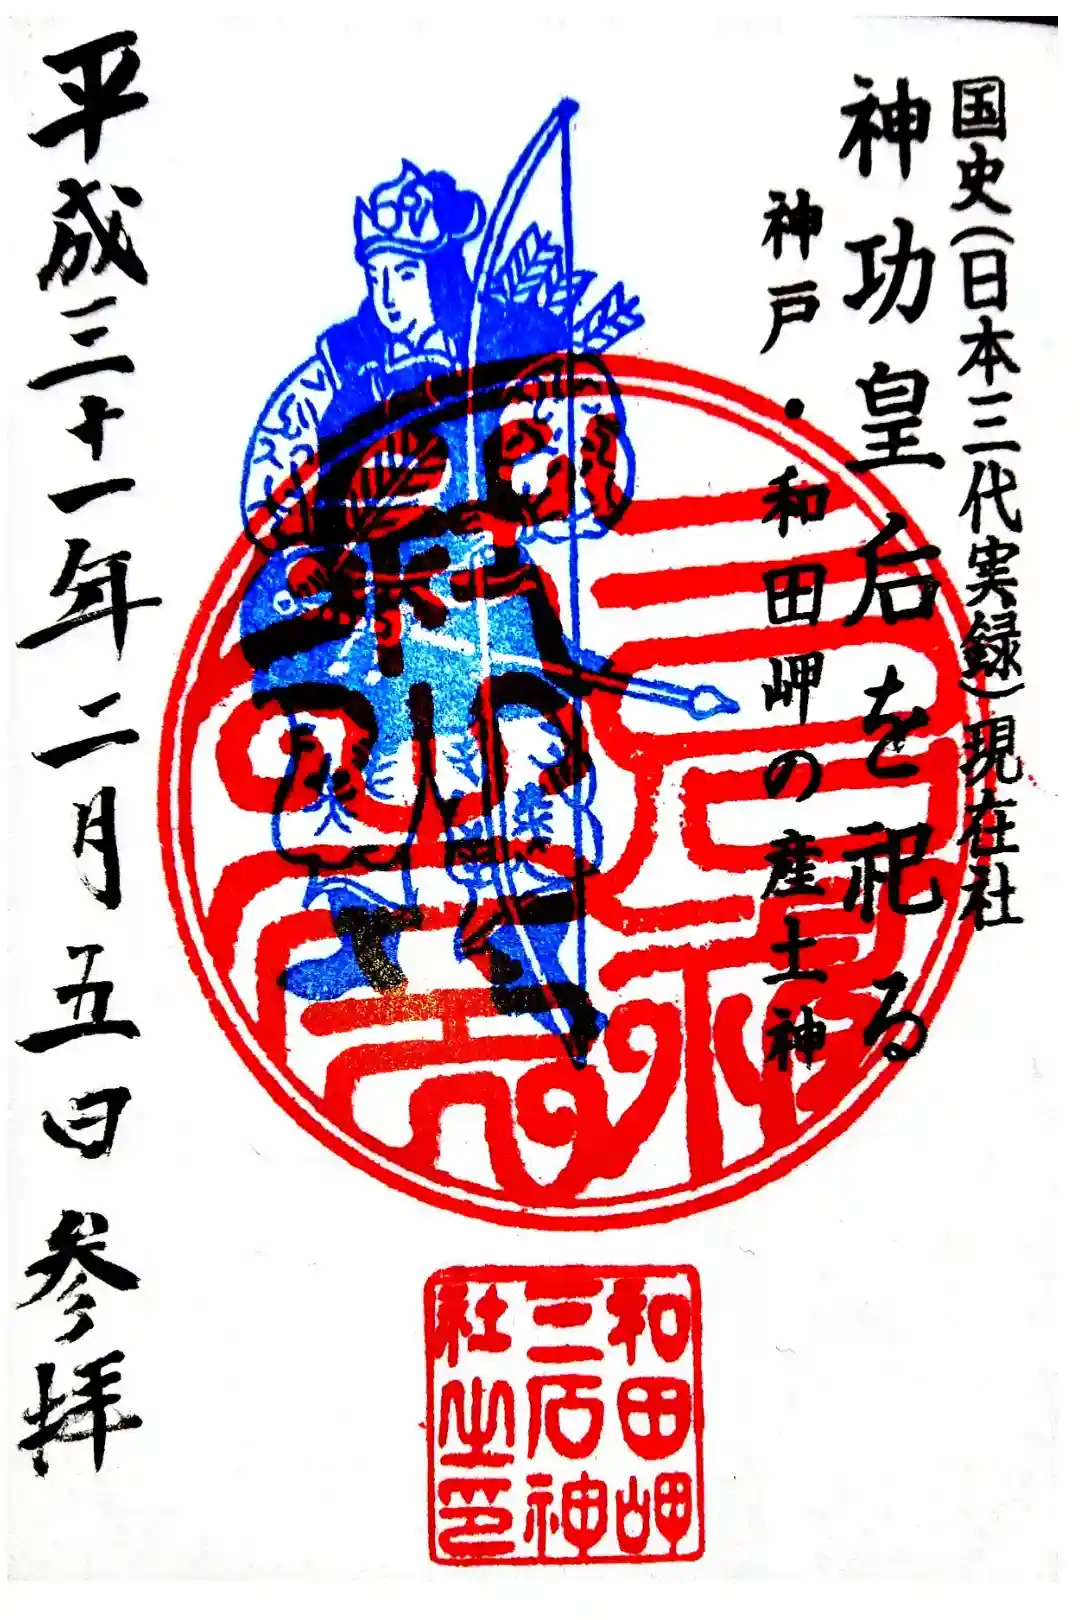 国史(日本三代実録)現在社
神功皇后を祀る
神戸・和田岬の産土神
平成三十一年二月五日参拝
和田岬
三石神
社之印